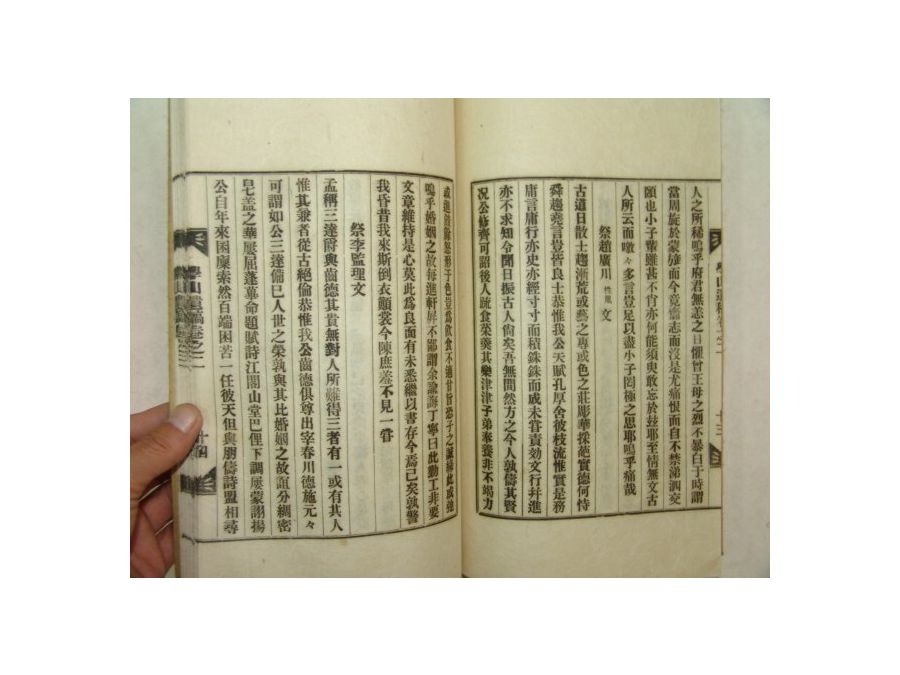 人之所稀嗚乎府君無恙之日懼曾王母之烈不暴白于時謂
當周旋於蒙強而今竟齎志而沒是尤痛恨而自不禁涕泗交
頤也小子輩雖甚不肖亦何能須臾敢忘於玆耶至情無文古
人所云而嗷々多言豈足以盡小子罔極之思耶嗚乎痛哉
祭趙廣川 性胤 文
古道日散士趨漸荒或藝之專或色之莊彫華採葩實德何恃
舜趨堯言豈皆良士恭惟我公天賦孔厚舍彼枝流惟實是務
庸言庸行亦史亦經寸寸而積銖銖而成未甞責効文行幷進
亦不求知令聞日振古人尙矣吾無間然方之今人孰儔其賢
况公修齊可詔後人疏食菜羹其樂津津子弟奉養非不竭力
或進 形于色豈爲飮食不適甘旨恐子之誠 此或弛
嗚乎婚姻之故每進軒屛不鄙謂余諭誨丁寧曰此勤工非要
文章維持是心莫此爲良面有未悉繼以書存今焉已矣孰警
我昏昔我來斯倒衣顚裳今陳庶羞不見一甞
祭李監理文
孟稱三達爵與齒德其貴無對人所難得三者有一或有其人
惟其兼者從古絕倫恭惟我公齒德俱尊出宰春川德施元々
可謂如公三達備已人世之榮孰與其比婚姻之故誼分綢密
皂盖之華屢屈蓬蓽命題賦詩江閣山堂巴俚下調屢蒙詡揚
公自年來困廩索然百端困苦一任彼天但與朋儔詩盟相尋
學山遺稿卷之二
十四
十三